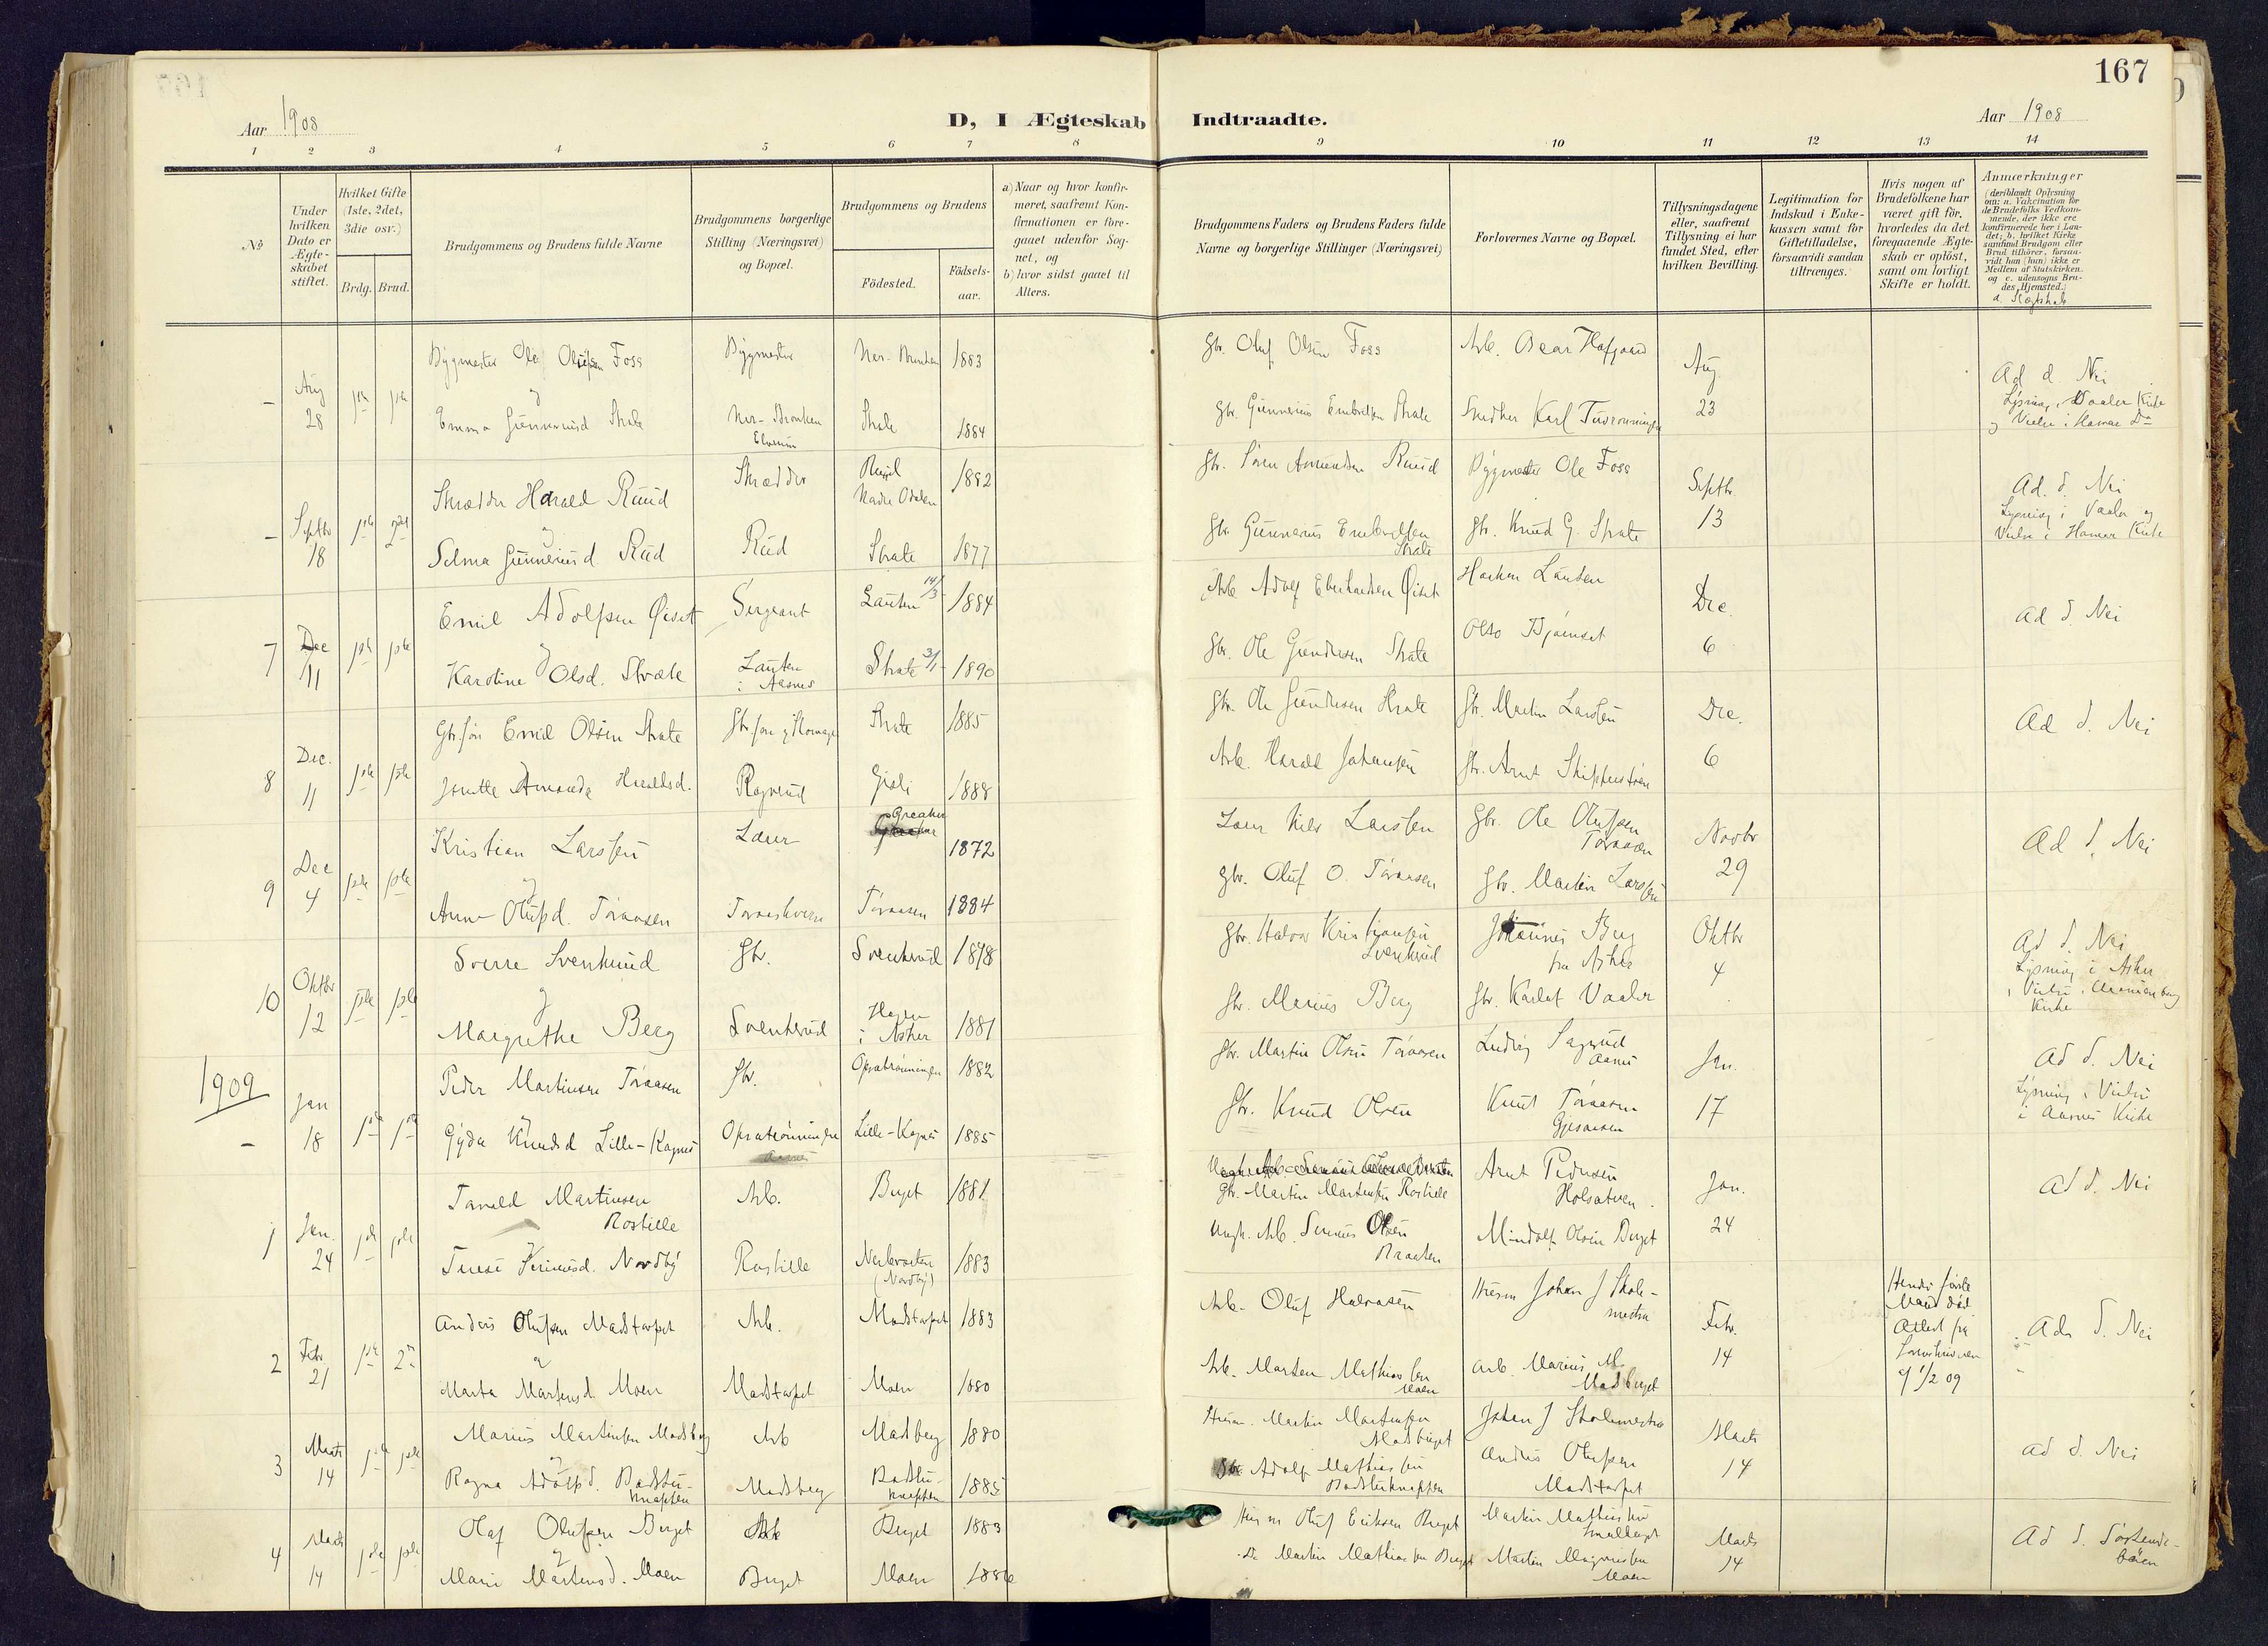 167
Aar 1908
D, I Ægteskab Indtraadte.
Aar 1908
1 2 3 4 5 6 7 8 9 10 11 12 13 14
No
Under hvilken Dato er Ægteskabet stiftet.
Hvilket Gifte (1ste, 2det, 3die osv.)
Brdg. Brud.
Brudgommens og Brudens fulde Navne
Brudgommens borgerlige Stilling (Næringsvei) og Bopæl.
Brudgommens og Brudens
Födested.
Födsels-aar.
a) Naar og hvor konfir-
meret, saafremt Kon-
firmationen er fore-
gaaet udenfor Sog-
net, og
b) hvor sidst gaaet til
Alters.
Brudgommens Faders og Brudens Faders fulde
Navne og borgerlige Stillinger (Næringsvei)
Forlovernes Navne og Bopæl.
Tillysningsdagene
eller, saafremt
Tillysning ei har
fundet Sted, efter
hvilken Bevilling.
Legitimation for
Indskud i Enke-
kassen samt for
Giftetilladelse,
forsaavidt saadan
tiltrænges.
Hvis nogen af
Brudefolkene har
været gift för,
hvorledes da det
foregaaende Ægte-
skab er oplöst,
samt om lovligt
Skifte er holdt.
Anmærkninger
(deriblandt Oplysning
om: a. Vakcination for
de Brudefolks Vedkom-
mende, der ikke ere
konfirmerede her i Lan-
det; b. hvilket Kirke
samfund Brudgom eller
Brud tilhörer, forsaa-
vidt han (hun) ikke er
Medlem af Statskirken.
og c. udensogns Bru-
des Hjemsted.)
d. Slegtskab
- Aug 28 1ste 1ste
Bygmester Ole Olufsen Foss
og
Emma Gunneriusd Strate
Bygmester
Ner-Bronken
Elverum
1883
Strate 1884
Gbr. Oluf Olsen Foss
Gbr. Gunnerius Embretsen Strate
Arb. Oscar Hofgaard
Snedker Karl
Aug 23
Ad d. Nei
Lysning i Vaaler Kirke
og Vielse i Hamar Do
- Septbr 18 1ste 2det
Skrædder Harald Ruud
og
Selma Gunneriusd. Rud
Skrædder
Rud
Ruud
Nadre Odalen 1882
Strate 1877
Gbr. Søren Amundsen Ruud
Gbr. Gunnerius Embretsen
Strate
Bygmester Ole Foss
Gbr. Knud G. Strate
Septbr. 13
Ad. d. Nei
Lysning i Vaaler og
Vielse i Hamar Kirke
7 Dec 11 1ste 1ste
Emil Adolfsen Øiset
og
Karoline Olsd. Strate
Sergeant
Lauten
i Aasnes
Lauten 14/3 1884
Strate 3/1 1890
Arb. Adolf Eberhardsen Øiset
Gbr. Ole Gundersen Strate
Haaken Lauten
Otto Bjørnset
Dec. 6
Ad d. Nei
8 Dec. 11 1ste 1ste
Gbr.søn Emil Olsen Strate
Jonette Amanda Haraldsd.
Ragnrud
Strate 1885
Gjoli 1888
Gbr. Ole Gundersen Strate
Arb. Harald Johansen
Gbr. Martin Larsen
Gbr. Arnt
Dec. 6
Ad d. Nei
9 Dec 4 1ste 1ste
Kristian Larssen
og
Anne Olufsd. Toraasen
Lærer
Greaker
1872
Toraasen 1884
Lærer Nils Larssen
Gbr. Oluf O. Toraasen
Gbr. Ole Olufsen
Toraasen
Gbr. Martin Larssen
Novbr 29
Ad d. Nei
10 Oktbr 12 1ste 1ste
Sverre Svenkerud
og
Margrethe Berg
Gbr.
Svenkerud
Svenkerud 1878
Hagen
i Asker 1881
Gbr. Halvor Kristiansen
Svenkerud
Gbr. Marius Berg
Johannes Berg
fra Asker
Gbr. Karlot Vaaler
Oktbr 4
Ad d. Nei
Lysning i Asker
Kirke
1909
- Jan 18 1ste 1ste
Peder Martinsen Toraasen
og
Gyda Knudsd Lille-Kagnes
Gbr.
Opsatrønningen
Aasnes
Opsatrønningen 1882
Lille-Kagnes 1885
Gbr. Martin Olsen Toraasen
Gbr. Knud Olsen
Ludvig Sagerud
Aasnes
Knut Toraasen
Gjesaasen
Jan. 17
Ad d. Nei
Lysning i Vielse
i Aasnes Kirke
1 Jan. 24 1ste 1ste
Tarald Martinsen
Rostille
og
Terese Seriniusd. Nordby
Arb.
Rostille
Berget 1881
(Nordby) 1883
Gbr. Martin Martinsen Rostille
Ungk. Arb. Serinius Olsen
Braaten
Arnt Pedersen
Holsætren.
Mindolf Olsen Berget
Jan. 24
Ad d. Nei
2 Febr. 21 1ste 2n
Anders Olufsen Madstorpet
og
Marta Martensd. Moen
Arb.
Madstorpet
Madstorpet 1883
Moen 1880
Arb. Oluf Halvorsen
Arb. Marten Mathiassen
Moen
Husm Johan J Skole-
mestra
Arb. Marius M.
Madberget
Febr. 14
Hendes første
Mand død
Attest fra
1/2 09
Ad d. Nei
3 Marts 14 1ste 1ste
Marius Martinsen Madsberg
og
Ragna Adolfsd. Badstu-
knappen
Arb
Madsberg
Madberg 1880
Badstu-
knappen 1885
Husm. Martin Martinsen
Madberget
Adolf Mathiassen
Badstuknappen
Johan J Skolemestra
Anders Olufsen
Madstorpet
Marts 14
Ad d. Nei
4 Marts 14 1ste 1ste
Olaf Olufsen Berget
og
Marie Martensd. Moen
Arb
Berget
Berget 1883
Moen 1886
Husm Oluf Eriksen Berget
Do Martin Mathiassen Berget
Martin Mathiassen
Martin Magnussen
Moen
Marts 14
Ad d. Søskende-
børn